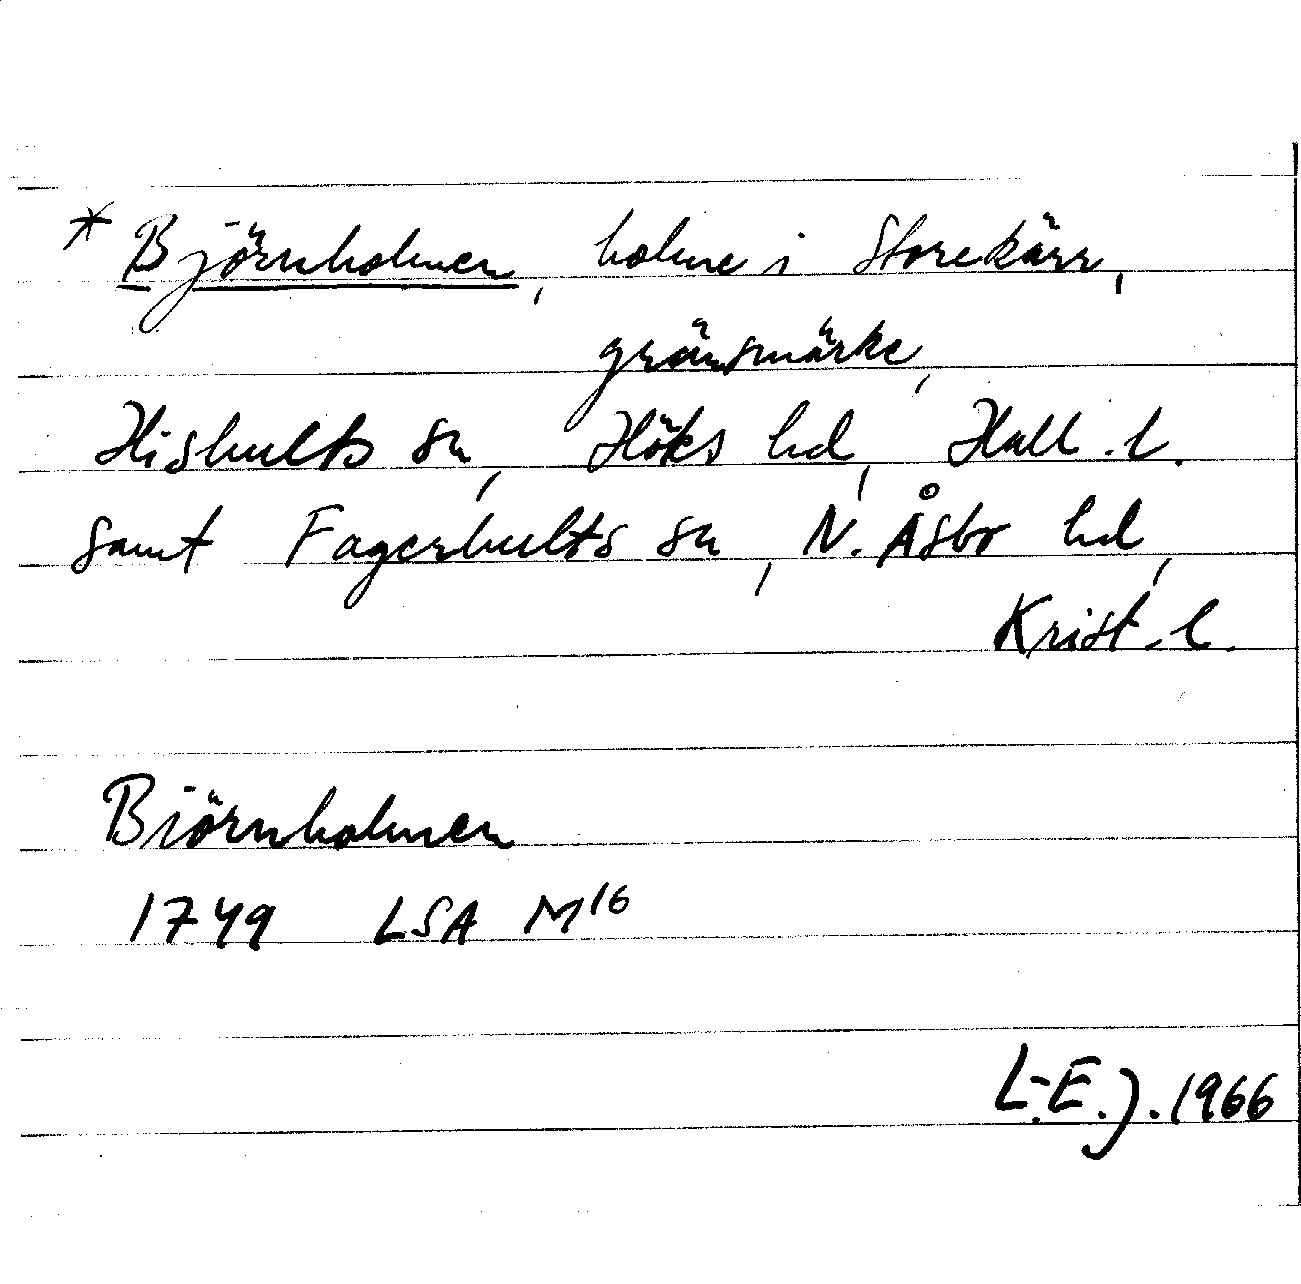 * Björnholmen, holme i Storekärr,
gränsmärke,
Hishults sn, Höks hd, Hall. l.
samt Fagerhults sn, N. Åsbo hd,
Krist. l.
Biörnholmen
1749 LSA M16
L.-E. J. 1966